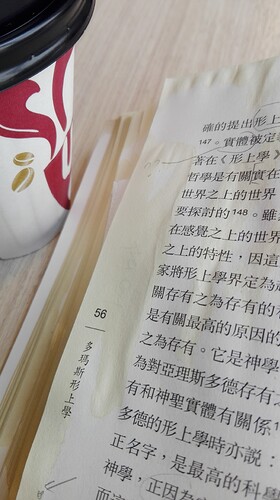 確的提出形上
147。實體被定
著在《形上學》
哲學是有關實在
世界之上的世界
要探討的148。雖
在感覺之上的世界
之上的特性，因這
家將形上學界定為
關存有之為存有的科
是有關最高的原因的
之為存有。它是神學
為對亞理斯多德存有
有和神聖實體有關係
多德的形上學時亦說：
正名字，是最高的科
神學，正因為
56
多瑪斯形上學